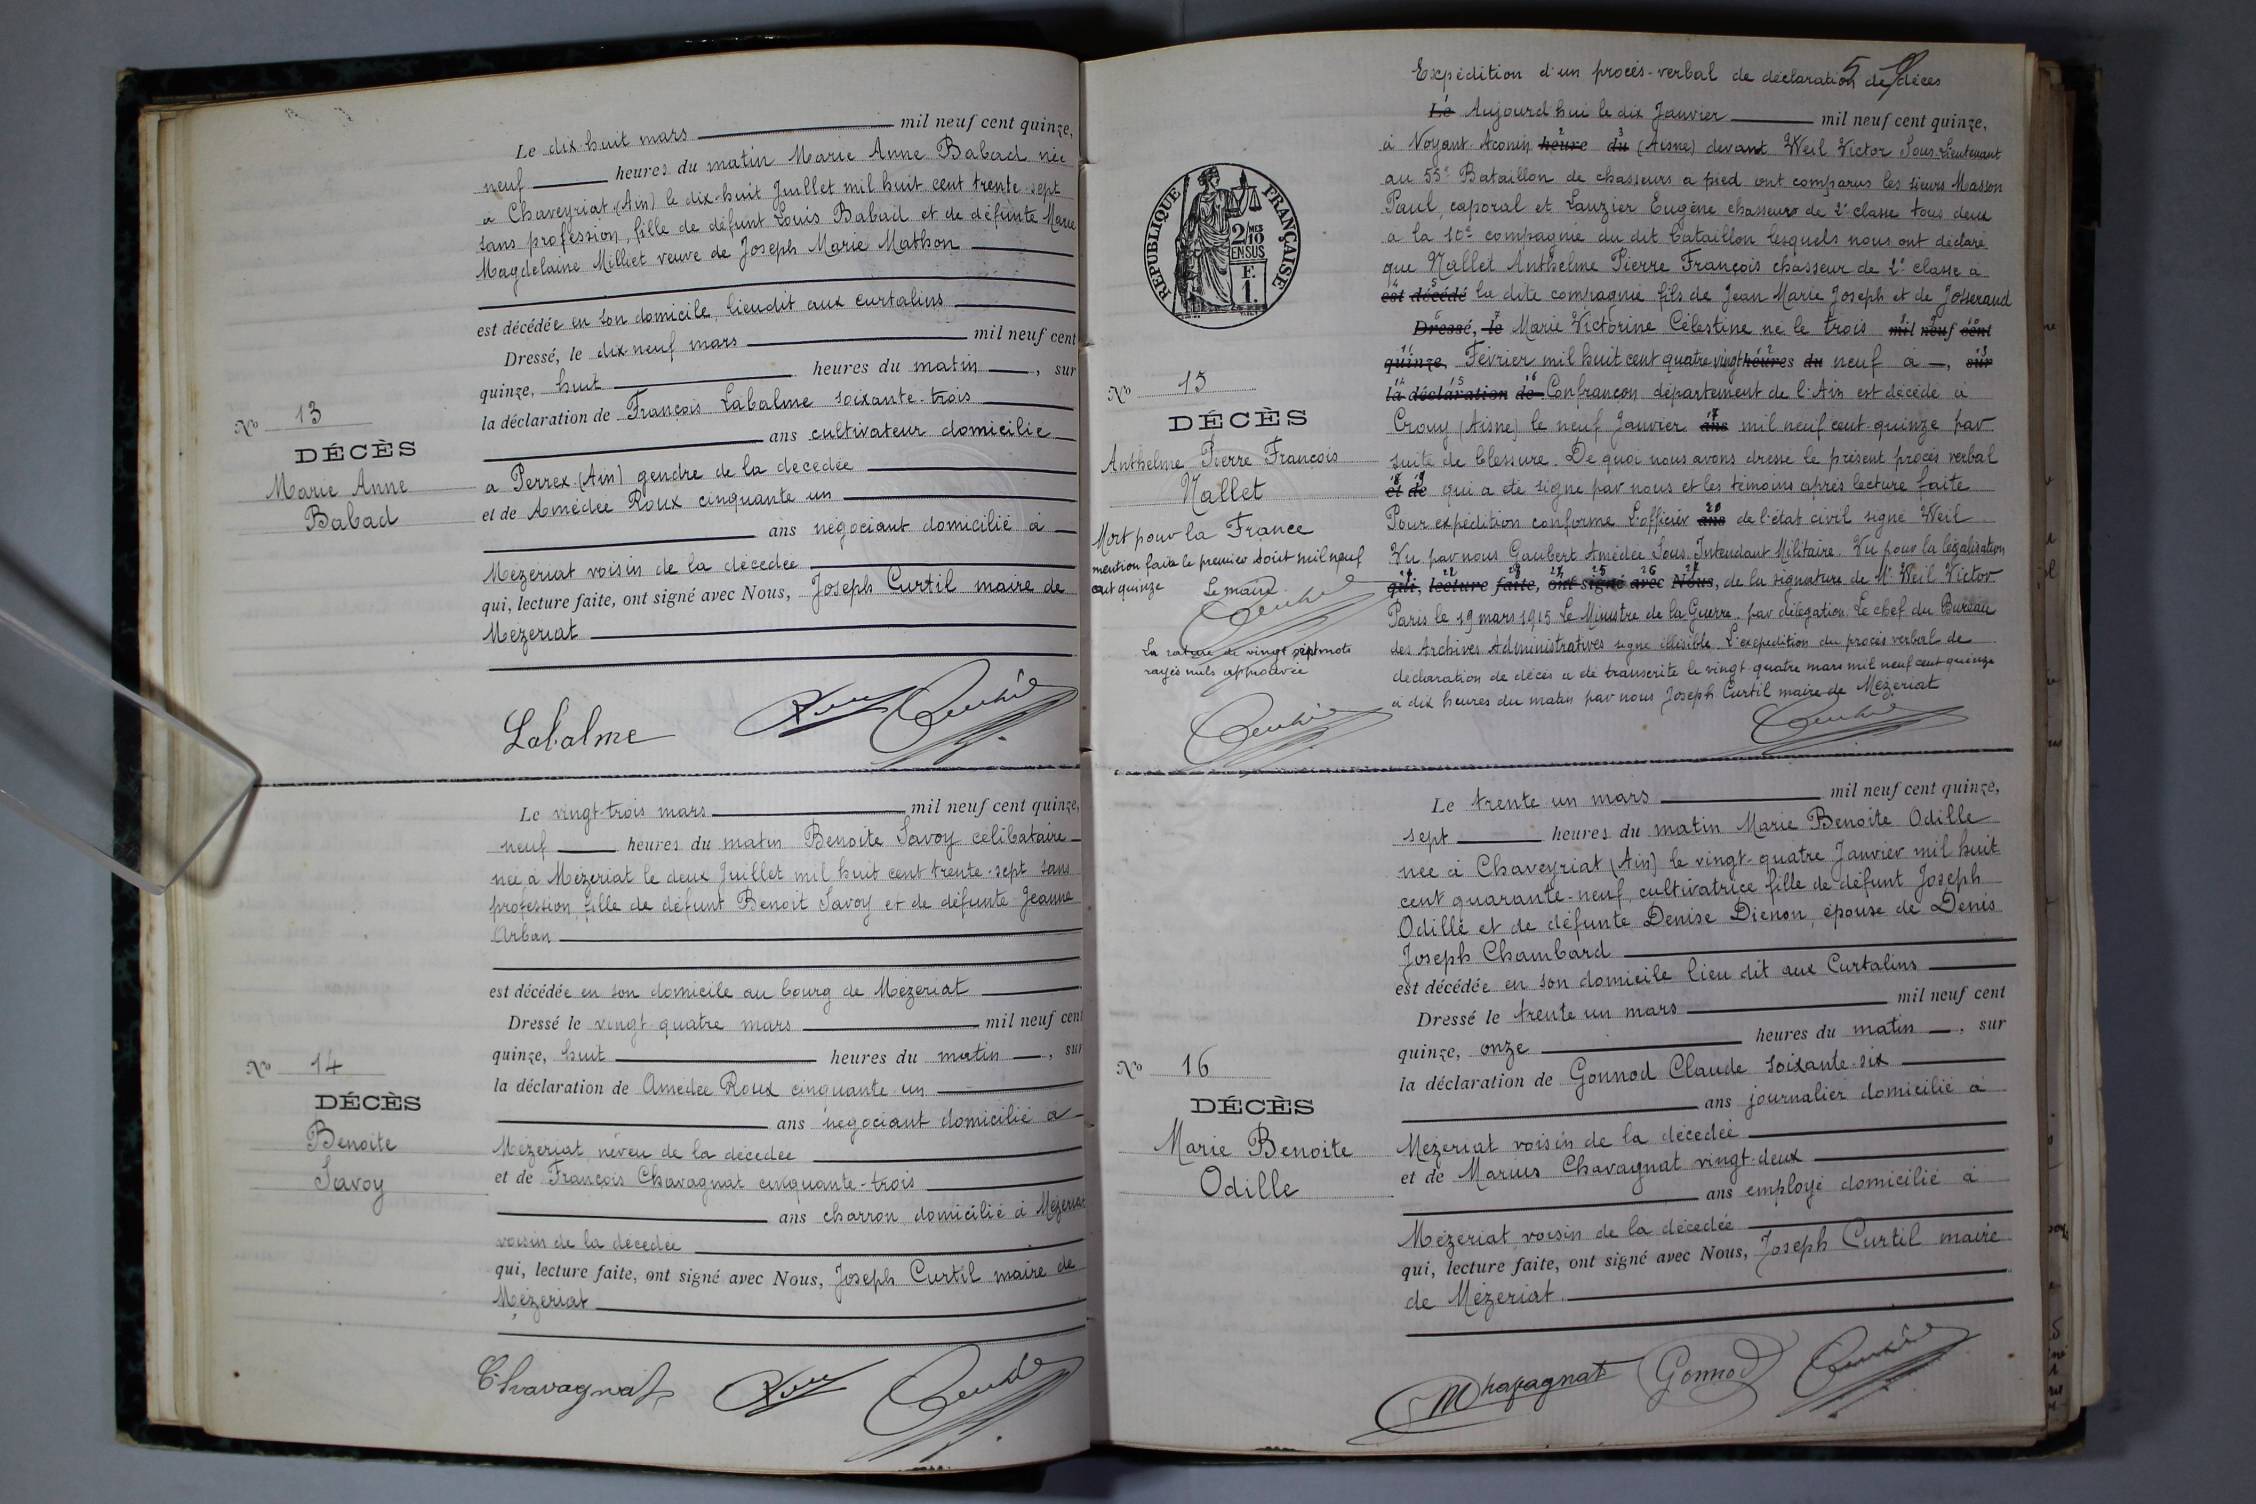 Le dix-huit mars mil neuf cent quinze,
neuf heures du matin Marie Anne Babad née
a Chaveyriat (Ain) le dix-huit Juillet mil huit cent trente-sept
sans profession, fille de défunt Louis Babad et de défunte Marie
Magdelaine Milliet veuve de Joseph Marie Mathon
est décédée en son domicile, lieudit aux curtalins
Dressé, le dix neuf mars mil neuf cent
quinze, huit heures du matin, sur
la déclaration de François Labalme soixante-trois
ans cultivateur domicilié
a Perrex (Ain) gendre de la décedée
et de Amédée Roux cinquante un
ans négociant domicilié à
Mézériat voisin de la décedée
qui, lecture faite, ont signé avec Nous, Joseph Curtil maire de
Mézériat
No 13
DÉCÈS
Marie Anne
Babad
Labalme
Le vingt-trois mars mil neuf cent quinze,
neuf heures du matin Benoite Savoy célibataire
née à Mézériat le deux Juillet mil huit cent trente-sept sans
profession, fille de défunt Benoit Savoy et de défunte Jeanne
Arban
est décédée en son domicile au bourg de Mézériat
Dressé le vingt quatre mars mil neuf cent
quinze, huit heures du matin, sur
la déclaration de Amédée Roux cinquante un
ans négociant domicilié à
Mézériat néveu de la décedée
et de François Chavagnat cinquante-trois
ans charron domicilié à Mézériat
voisin de la décedée
qui, lecture faite, ont signé avec Nous, Joseph Curtil maire de
Mézériat
No 14
DÉCÈS
Benoite
Savoy
Chavagnat
Expédition d'un procès-verbal de déclaration de décès
5
Le Aujourd'hui le dix Janvier mil neuf cent quinze,
à Noyant-Aconin heure du (Aisne) devant Weil Victor Sous-Lieutenant
au 55e Bataillon de chasseurs a pied ont comparus les sieurs Masson
Paul, caporal et Lauzier Eugène chasseurs de 2e classe tous deux
a la 10e compagnie du dit bataillon lesquels nous ont déclaré
que Nallet Anthelme Pierre François chasseur de 2e classe à
est décédé la dite compagnie fils de Jean Marie Joseph et de Josserand
Dressé, le Marie Victorine Célestine né le trois mil neuf cent
quinze, Février mil huit cent quatre vingt heures du neuf à, sur
la déclaration de Confrançon département de l'Ain est décédé à
Crouy (Aisne) le neuf Janvier ans mil neuf cent quinze par
suite de blessure. De quoi nous avons dressé le présent procès verbal
et de qui a été signé par nous et les témoins après lecture faite
Pour expédition conforme L'officier ans de l'état civil signé Weil
Vu par nous Gaubert Amédée Sous-Intendant Militaire. Vu pour la légalisation
qui, lecture faite, ont signé avec Nous, de la signature de Mr Weil Victor
Paris le 19 mars 1915 Le Ministre de la Guerre, par délégation. Le chef du Bureau
des Archives Administratives signé illisible. L'expédition du procès verbal de
déclaration de décès a été transcrite le vingt-quatre mars mil neuf cent quinze
à dix heures du matin par nous Joseph Curtil maire de Mézériat
RÉPUBLIQUE FRANÇAISE
2/10
MES
EN SUS
F.
1.
No 15
DÉCÈS
Anthelme Pierre François
Nallet
Mort pour la France
mention faite le premier Août mil neuf
cent quinze Le maire
La rature de vingt sept mots
rayés nuls approuvée
Le trente un mars mil neuf cent quinze,
sept heures du matin Marie Benoite Odille
née à Chaveyriat (Ain) le vingt-quatre Janvier mil huit
cent quarante-neuf, cultivatrice fille de défunt Joseph
Odille et de défunte Denise Dienon, épouse de Denis
Joseph Chambard
est décédée en son domicile lieu dit aux Curtalins
Dressé le trente un mars mil neuf cent
quinze, onze heures du matin, sur
la déclaration de Gonnod Claude soixante-six
ans journalier domicilié à
Mézériat voisin de la décedée
et de Marius Chavagnat vingt-deux
ans employé domicilié à
Mézériat voisin de la décedée
qui, lecture faite, ont signé avec Nous, Joseph Curtil maire
de Mézériat.
No 16
DÉCÈS
Marie Benoite
Odille
Gonnod